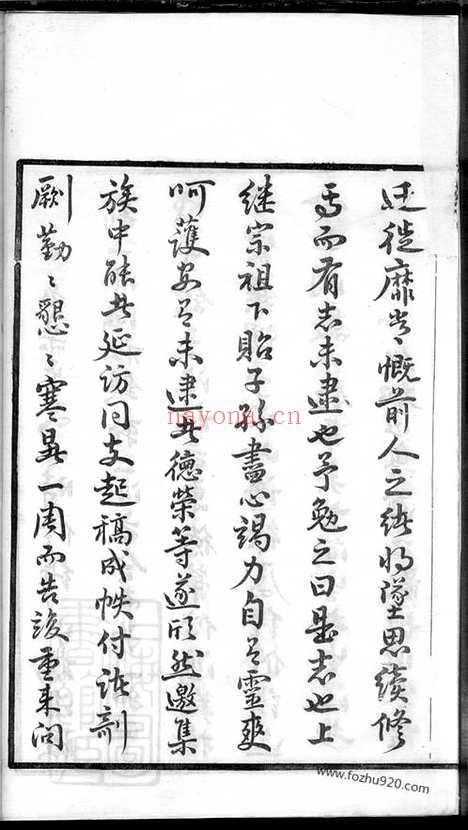 迁徙靡常慨前人之緒將墜思續修
焉而有志未逮也予勉之曰是志也上
继宗祖下貽子孫盡心竭力自有靈爽
呵護安有未逮者德榮等遂欣然邀集
族中能者延访同支起稿成帙付諸剞
劂勤勤懇懇寒暑一周而告竣重来问
nayona.cn
www.fozhu920.com